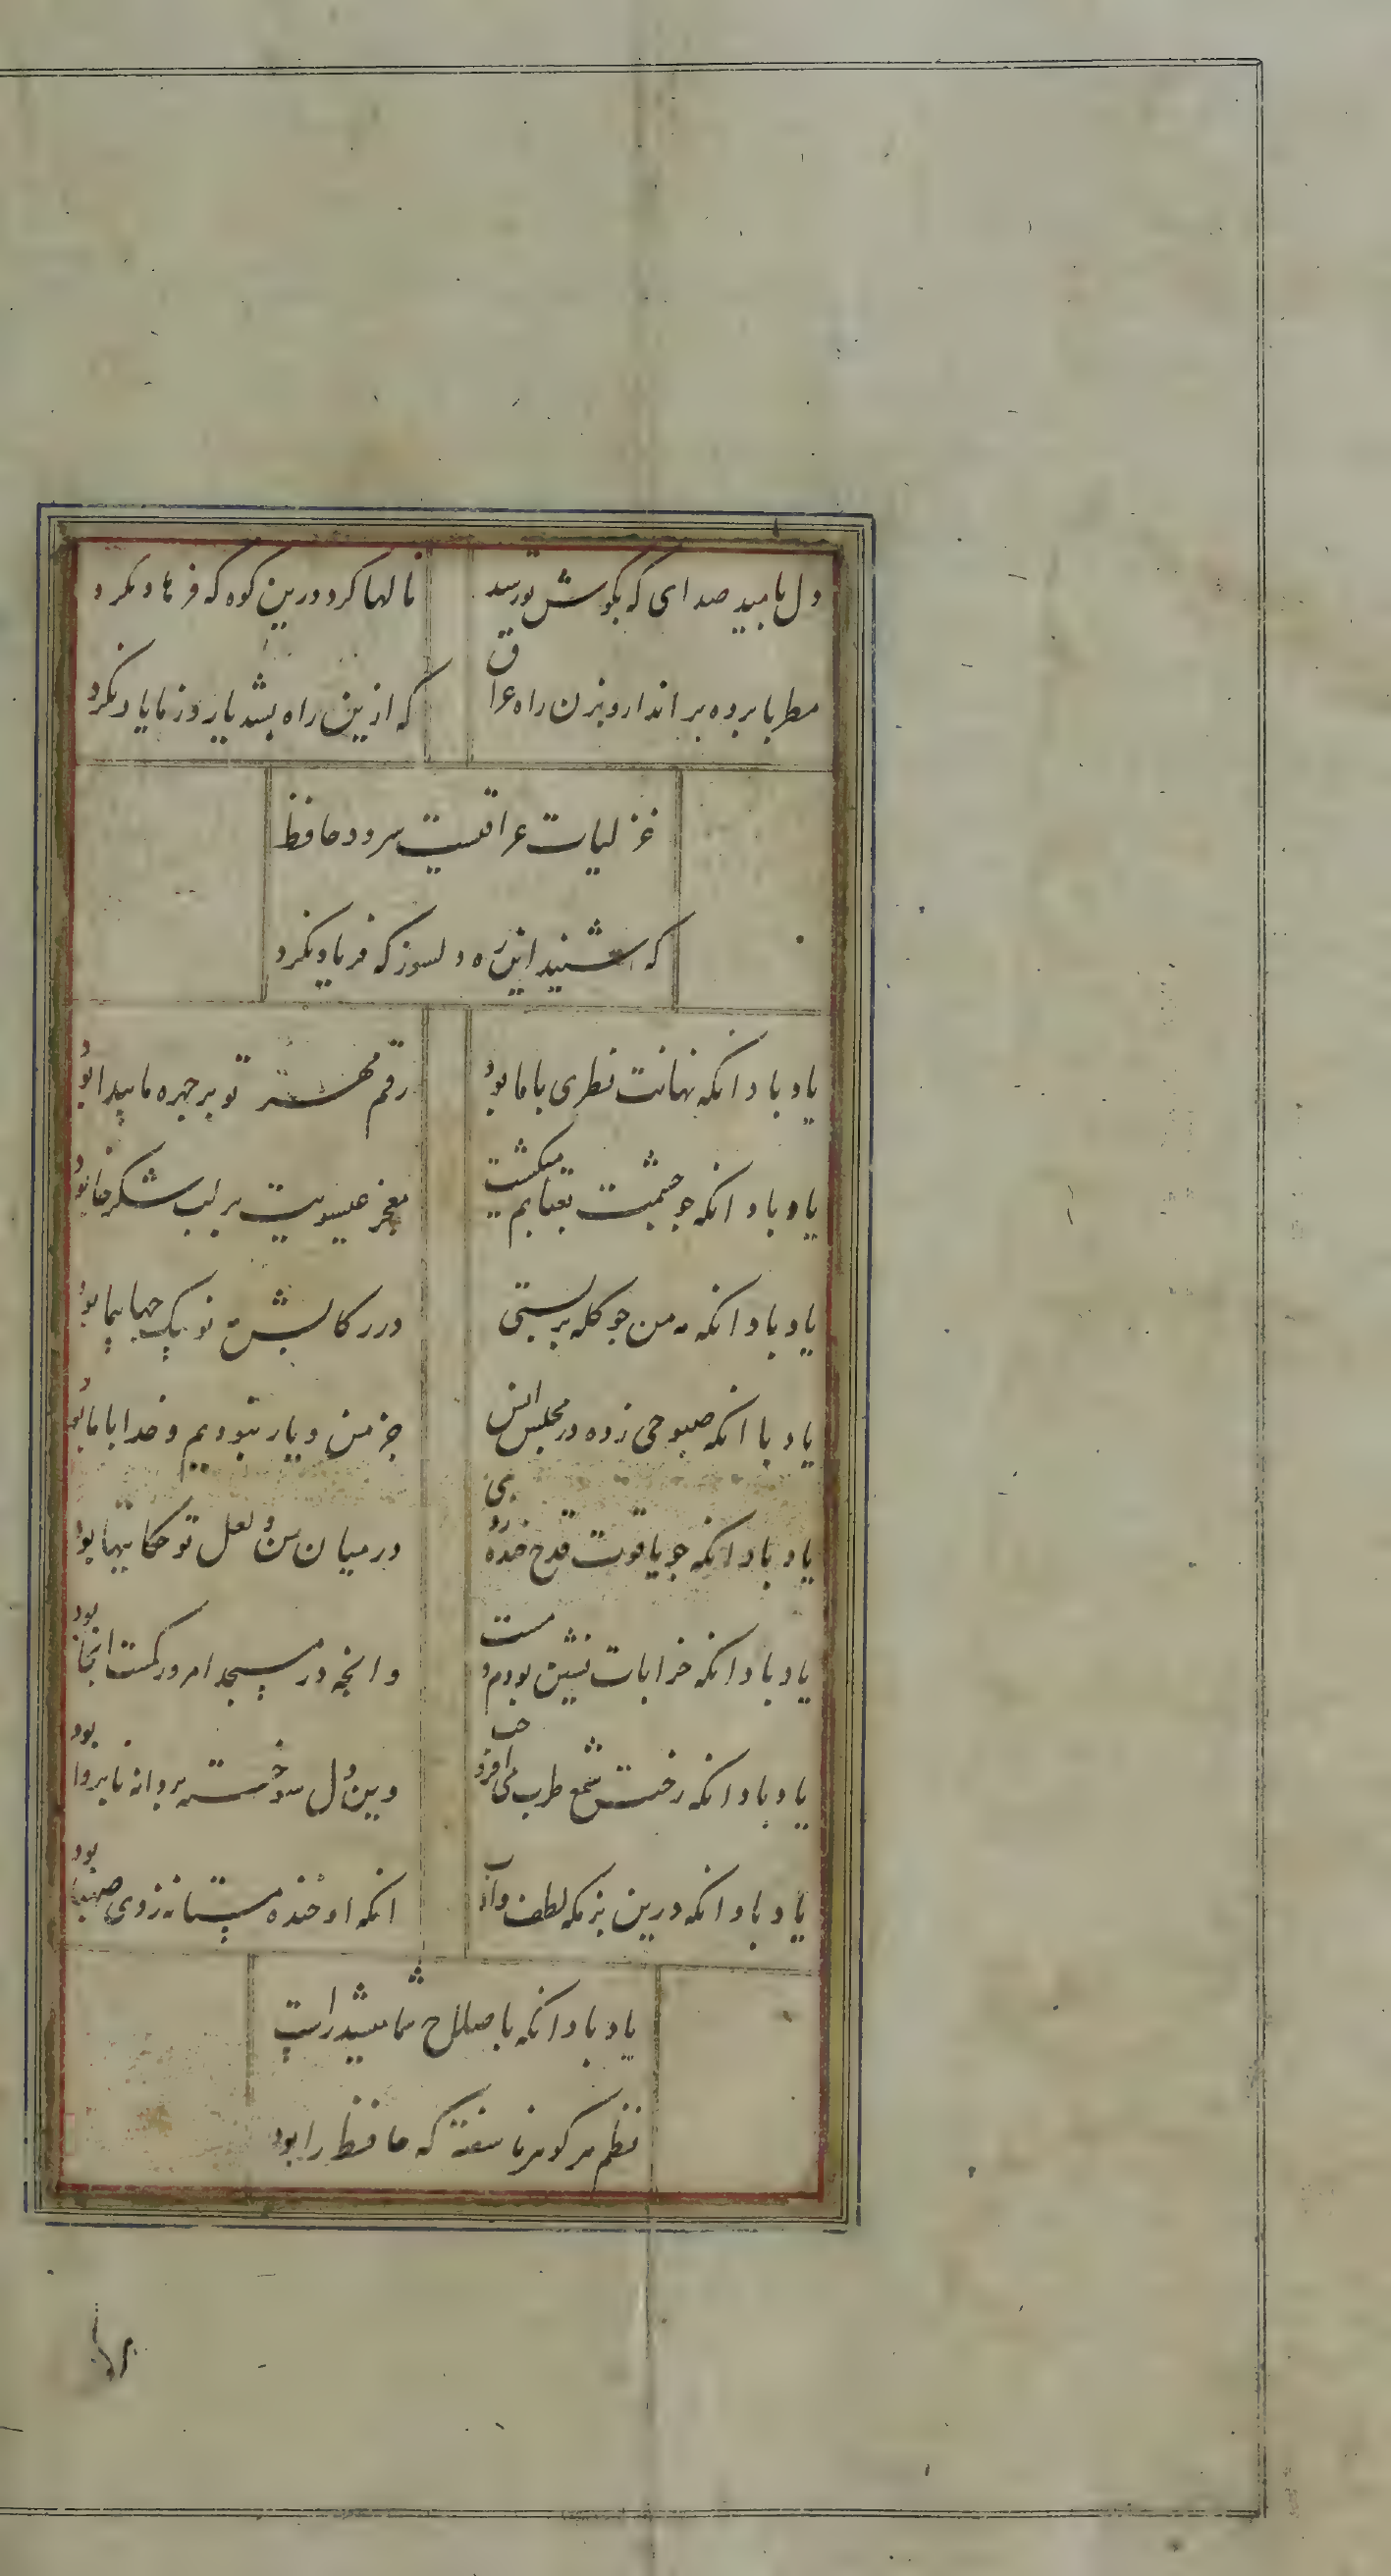 دل بامید صدای که بگوش تو رسد
نالها کرد درین کوه که فرهاد نکرد
مطربا برده بر اندار و بزن راه عراق
که ازین راه بشد یار و ز ما یاد نکرد
غزلیات عراقیست سرود حافظ
که شنید این ره دلسوز که فریاد نکرد
یاد باد انکه نهانت نطری با ما بود
رقم مهر تو بر جهره ما پیدا بود
یاد باد انکه جو جشمت بعتابم میکشت
معجز عیسویت بر لب شکر خا بود
یاد باد انکه مه من جو کله بر بستی
در رکابش مه نو پیک جهان پیما بود
یاد با انکه صبوحی زده در مجلس انس
جز من و یار نبودیم و خدا با ما بود
یاد باد انکه جو یاقوت قدح خنده زدی
در میان من و لعل تو حکایتها بود
یاد باد انکه خرابات نشین بودم و مست
وانجه در مسجد امروز کمست انجا بود
یاد باد انکه رخت شمع طرب می افروخت
وین دل سوخته بروانه نابروا بود
یاد باد انکه درین بزمکه لطف و ادب
انکه او خنده مستانه زدی صهبا بود
یاد باد انکه باصلاح شما میشد راست
نظم هر کوهر ناسفته که حافظ را بود